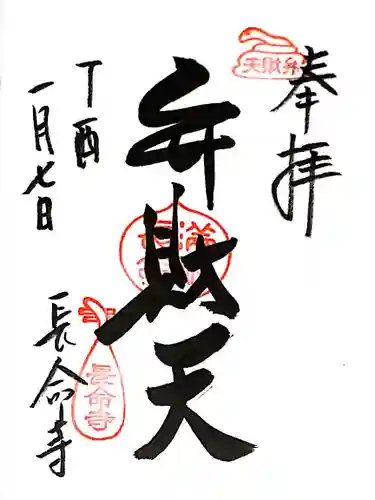 奉拝
天財弁
弁財天
丁酉
一月七日
長命寺
長命寺